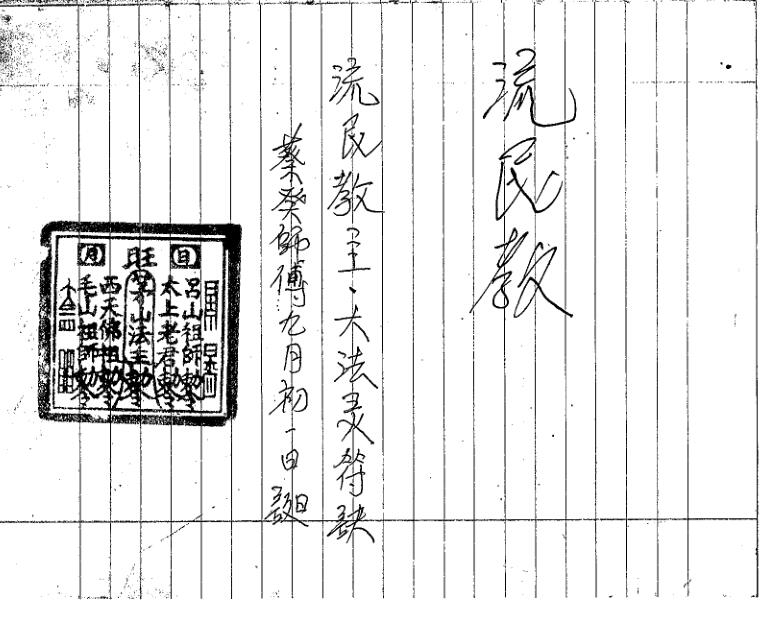 流民教
流民教主、大法灵符訣
蔡癸師傅九月初一日
日 旺 月
呂山祖師勅令
太上老君勅令
山法主勅令
西天佛祖勅令
毛山祖師勅令